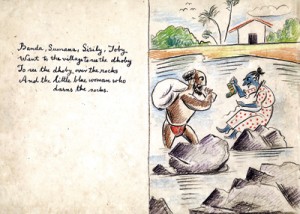 Banda, Sumana, Sirily, Toby.
Went to the village to see the dhoby
To see the dhoby, over the rocks
And the little blue woman who
darns the socks.